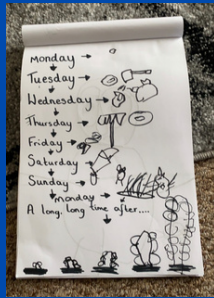 Monday
Tuesday
Wednesday
Thursday
Friday
Saturday
Sunday
monday
A long, long time after....